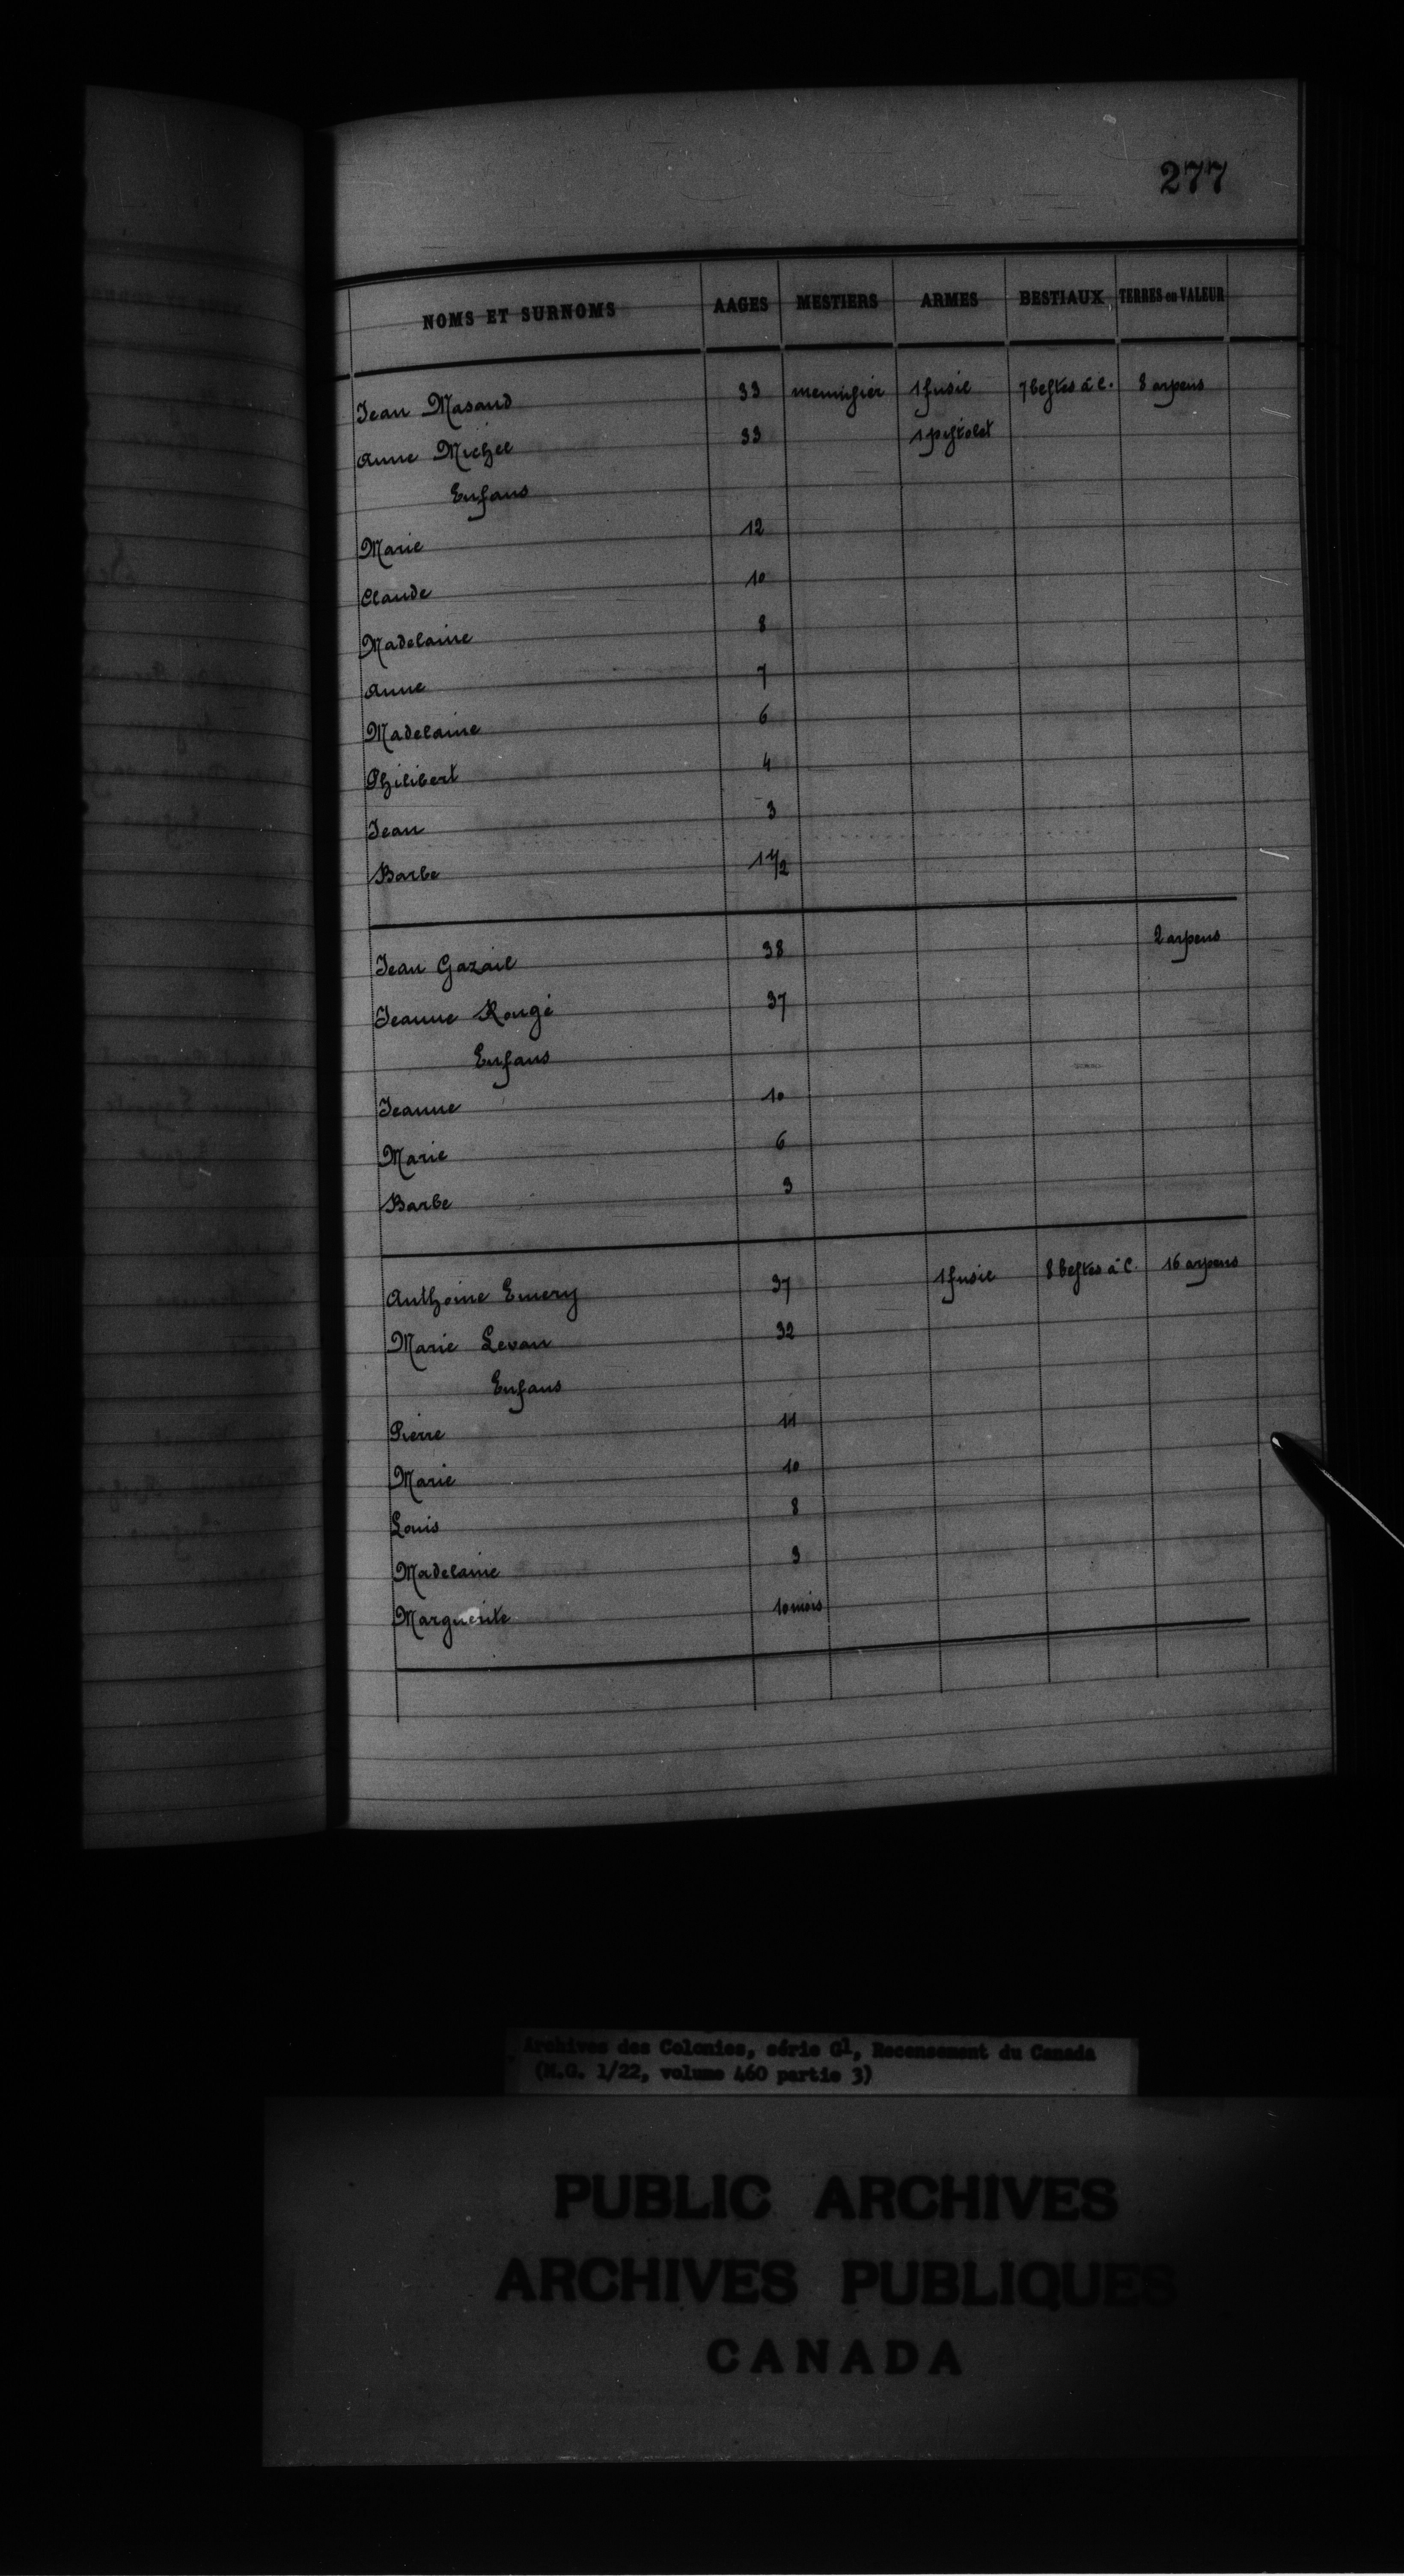 277
NOMS ET SURNOMS AAGES MESTIERS ARMES BESTIAUX TERRES ou VALEUR
Jean Masand 33 menuisier 1 fusil 7 bestes à c. 8 arpens
Anne Michel 33 1 pistolet
Enfans
Marie 12
Claude 10
Madelaine 8
Anne 7
Madelaine 6
Philibert 4
Jean 3
Barbe 1 1/2
Jean Gazail 38 2 arpens
Jeanne Rougé 37
Enfans
Jeanne 10
Marie 6
Barbe 3
Anthoine Emery 37 1 fusil 8 bestes à c. 16 arpens
Marie Devan 32
Enfans
Pierre 11
Marie 10
Louis 8
Madelaine 3
Marguerite 10 mois
Archives des Colonies, série G1, Recensement du Canada
(M.G. 1/22, volume 460 partie 3)
PUBLIC ARCHIVES
ARCHIVES PUBLIQUES
CANADA